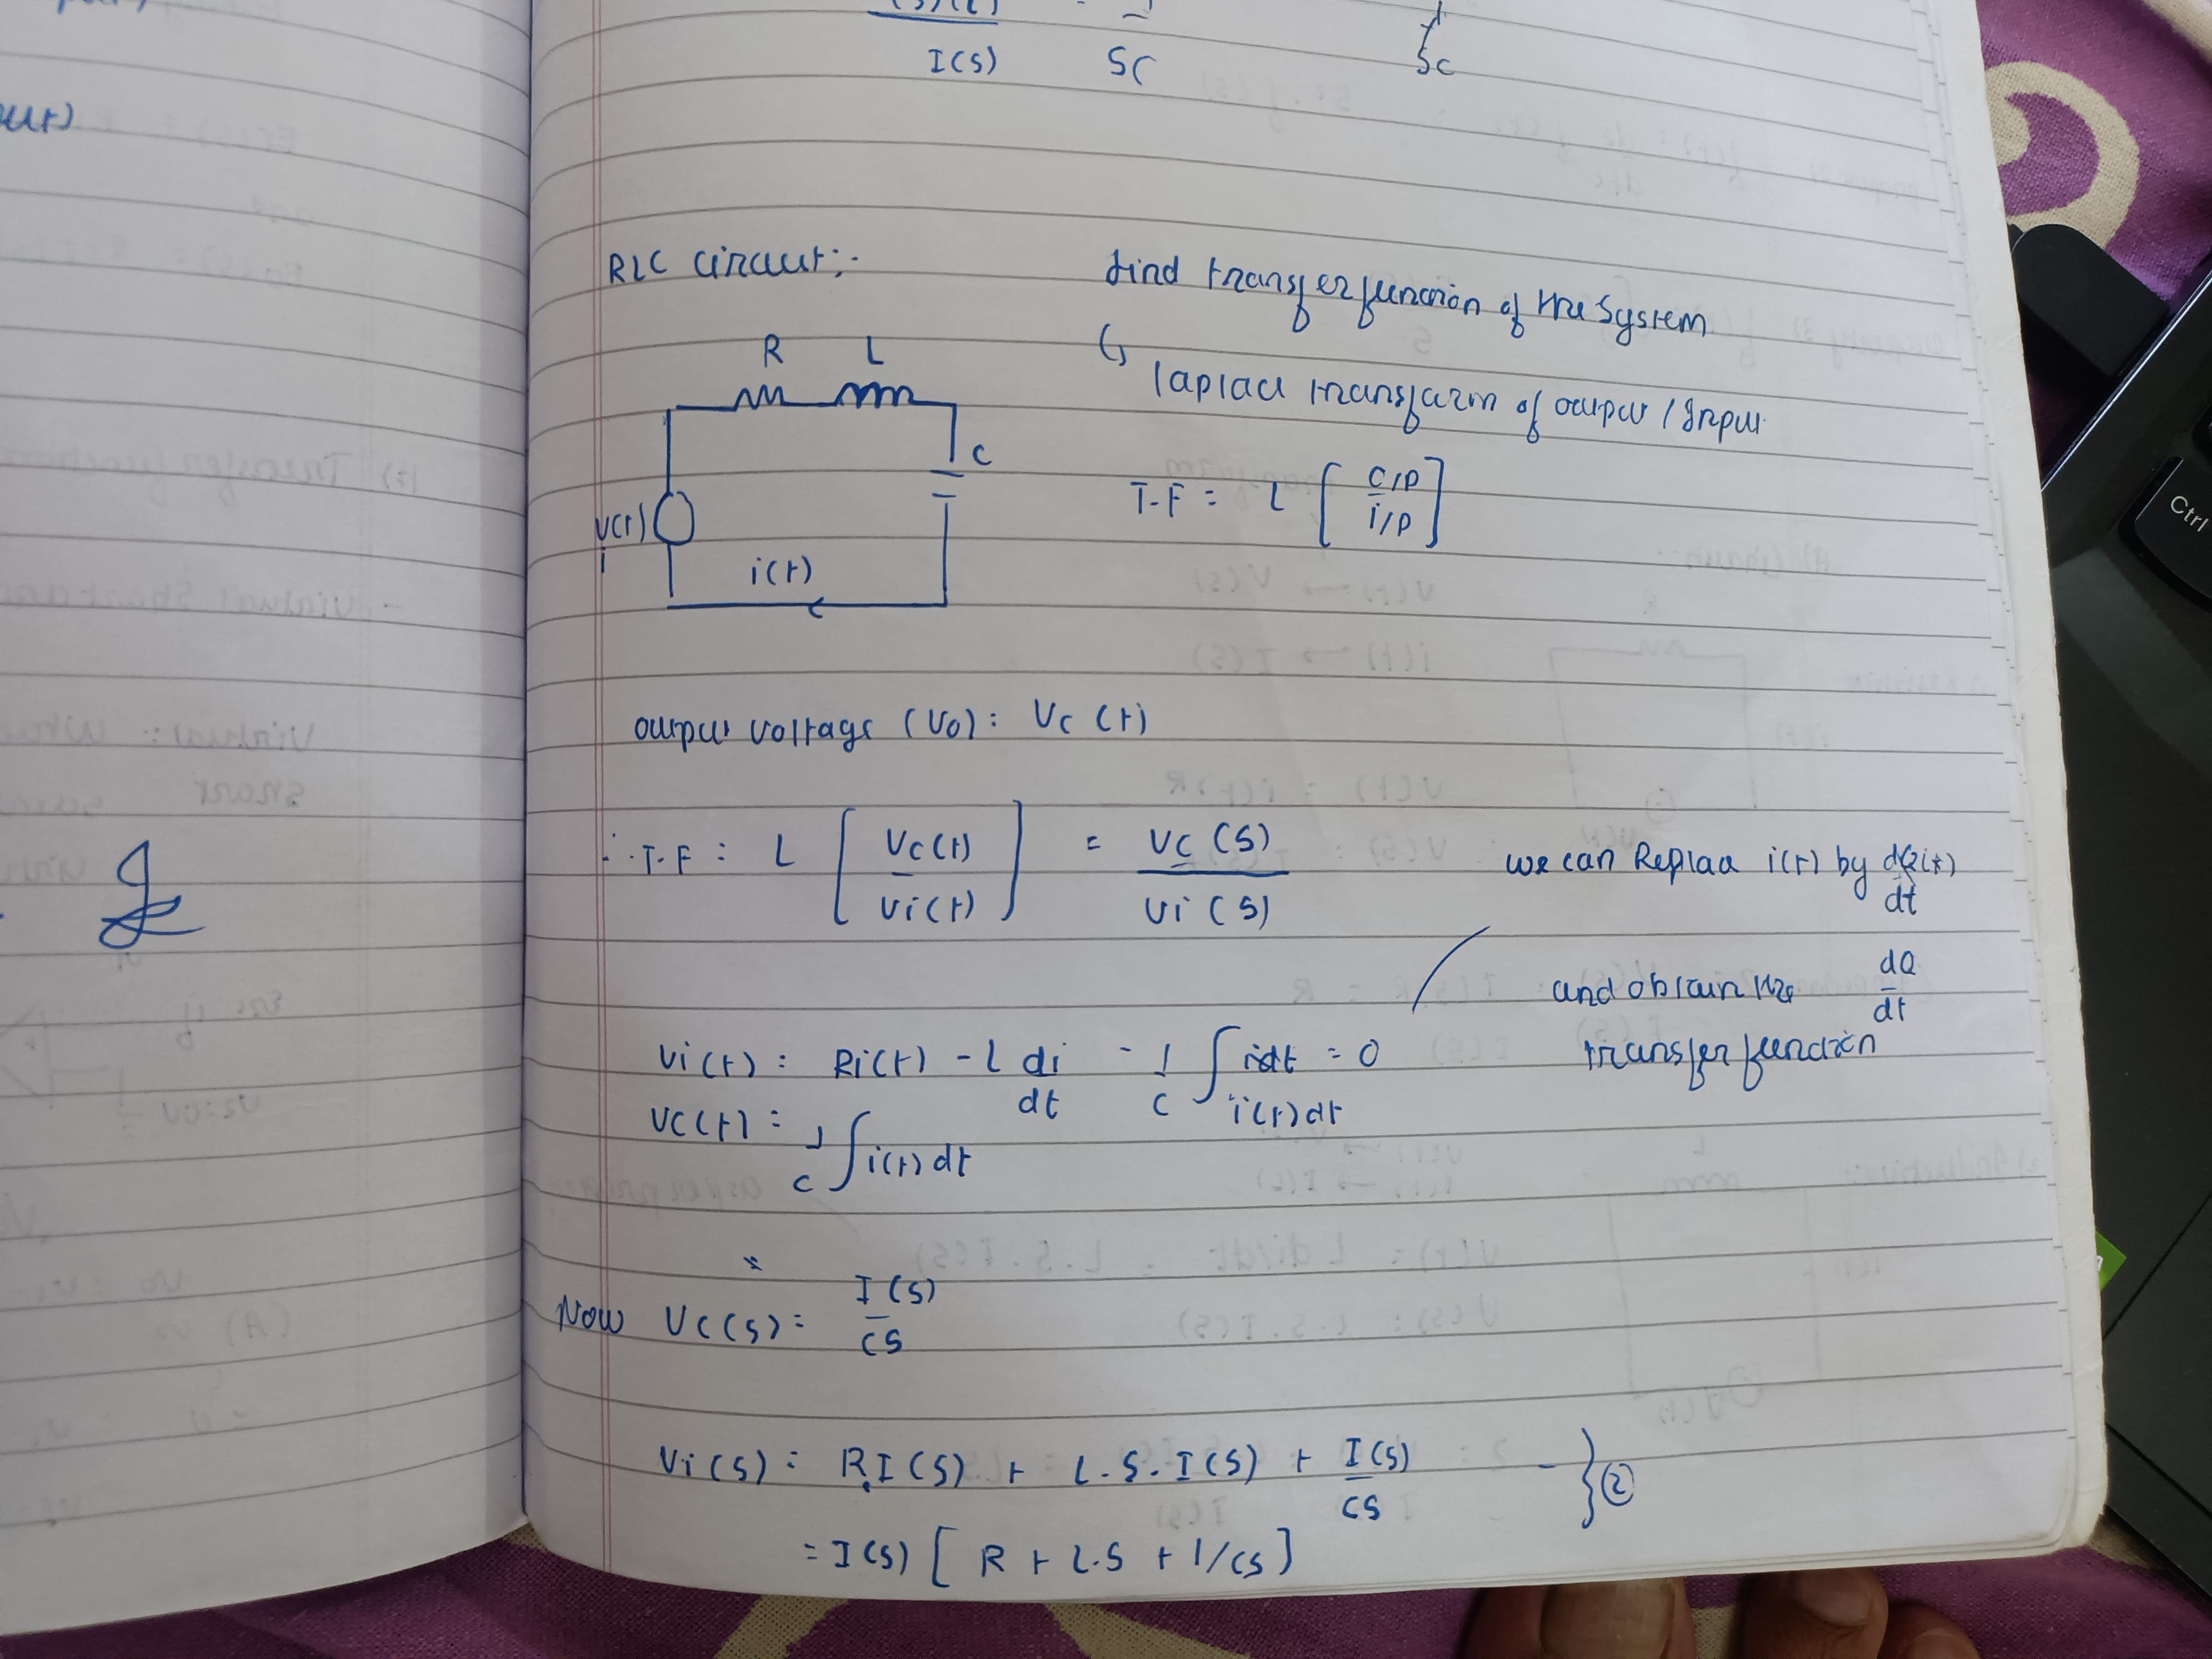 I(s) SC Sc
RLC circuit:- find transfer function of the system
↳ laplace transform of output / Input
R L
C
v(t)
i
i(t)
T.F = L [ o/p / i/p ]
output voltage (Vo): Vc (t)
∴ T.F = L [ Vc(t) / Vi(t) ] = Vc (s) / Vi (s)
we can Replace i(t) by dQ(t) / dt
and obtain the dQ / dt
transfer function
Vi(t) = Ri(t) - L di/dt - 1/C ∫ idt = 0
i(t)dt
Vc(t) = 1/C ∫ i(t) dt
Now Vc(s) = I(s) / Cs
Vi(s) = R I(s) + L.S.I(s) + I(s) / Cs - } ②
= I(s) [ R + L.S + 1/Cs ]
Ctrl